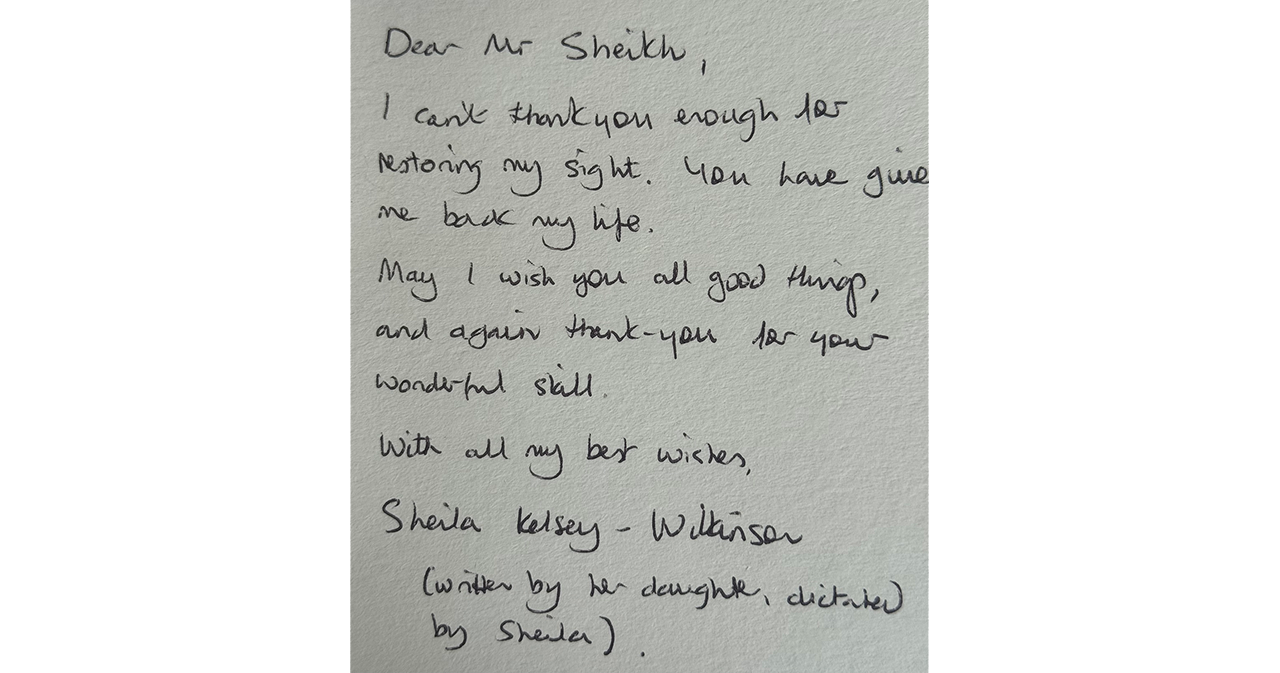 Dear Mr Sheikh,
I can't thank you enough for
restoring my sight. You have give
me back my life.
May I wish you all good things,
and again thank-you for your
wonderful skill.
With all my best wishes,
Sheila Kelsey - Wilkinson
(written by her daughter, dictated
by Sheila).